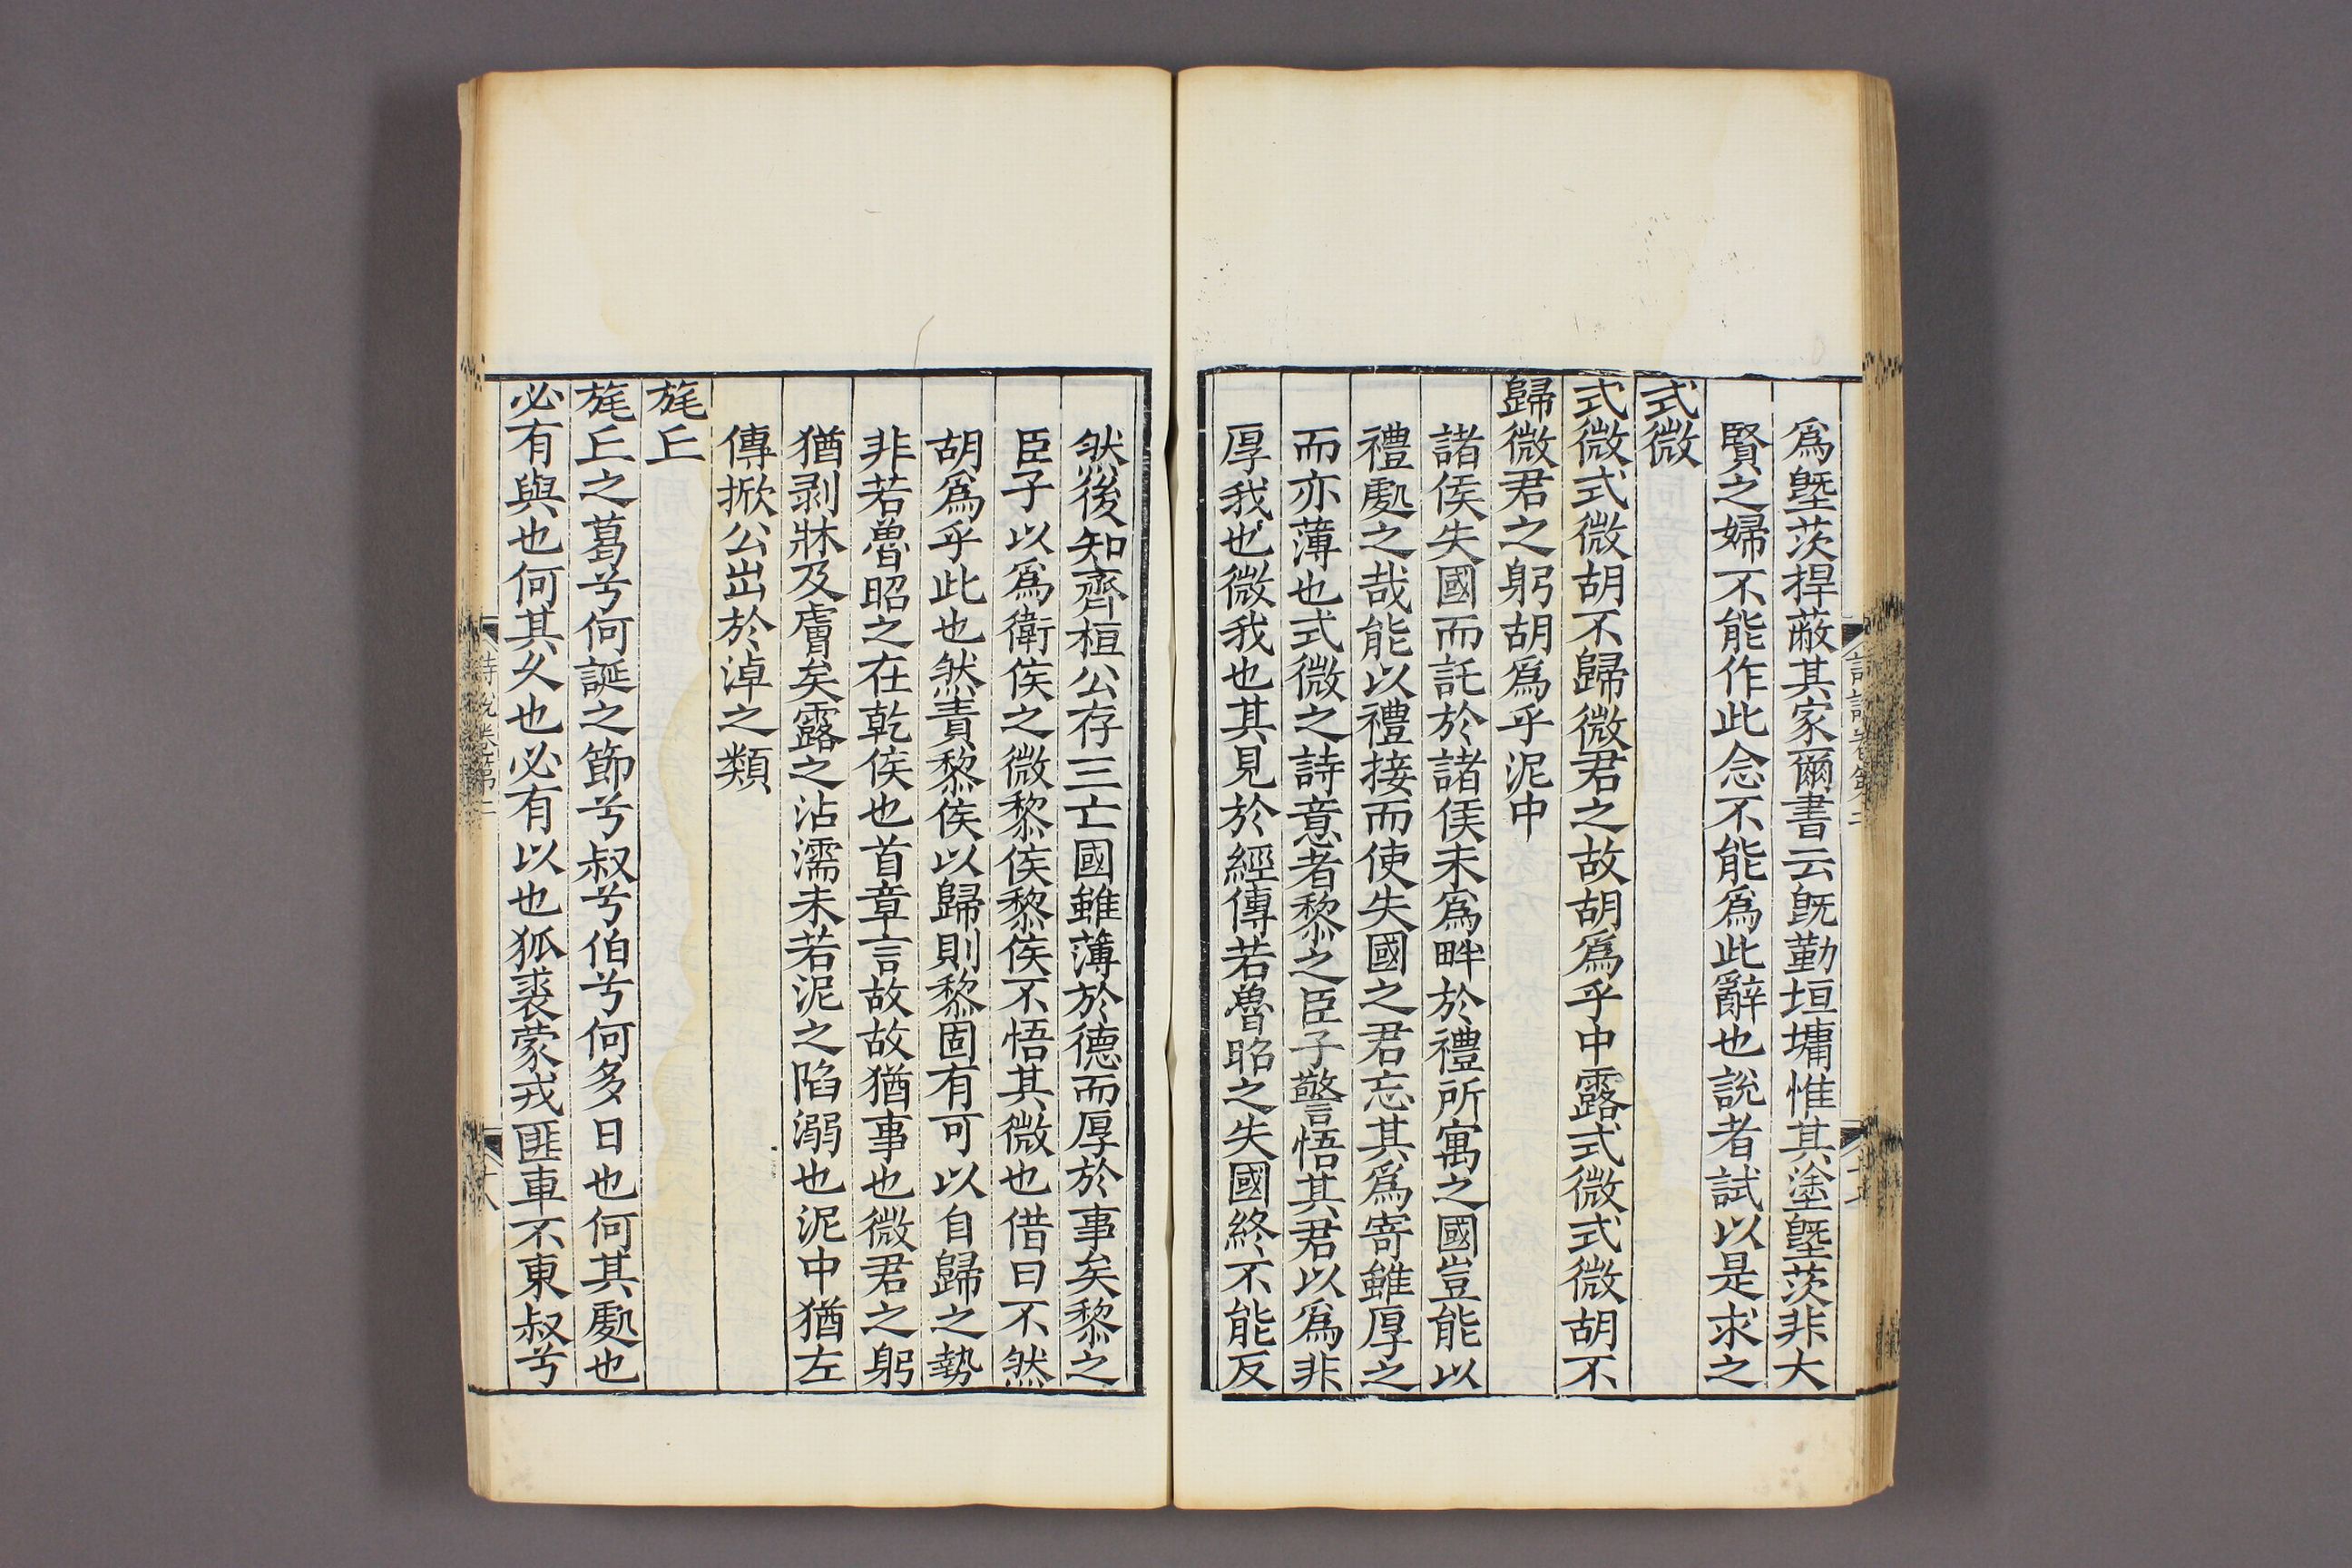 爲塈茨捍蔽其家爾書云旣勤垣墉惟其塗塈茨非大
賢之婦不能作此念不能爲此辭也說者試以是求之
式微
式微式微胡不歸微君之故胡爲乎中露式微式微胡不
歸微君之躬胡爲乎泥中
諸侯失國而託於諸侯未爲畔於禮所寓之國豈能以
禮處之哉能以禮接而使失國之君忘其爲寄雖厚之
而亦薄也式微之詩意者黎之臣子警悟其君以爲非
厚我也微我也其見於經傳若魯昭之失國終不能反
然後知齊桓公存三亡國雖薄於德而厚於事矣黎之
臣子以爲衛侯之微黎侯黎侯不悟其微也借曰不然
胡爲乎此也然責黎侯以歸則黎固有可以自歸之勢
非若魯昭之在乾侯也首章言故故猶事也微君之躬
猶剥牀及膚矣露之沾濡未若泥之陷溺也泥中猶左
傳掀公出於淖之類
旄丘
旄丘之葛兮何誕之節兮叔兮伯兮何多日也何其處也
必有與也何其久也必有以也狐裘蒙戎匪車不東叔兮
詩說卷第二
十八